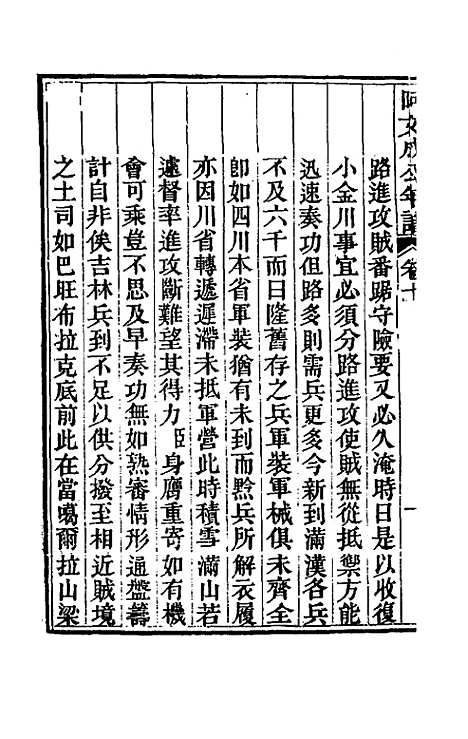 阿文成公年譜 卷十
路進攻賊番踞守險要又必久淹時日是以收復
小金川事宜必須分路進攻使賊無從抵禦方能
迅速奏功但路多則需兵更多今新到滿漢各兵
不及六千而日隆舊存之兵軍裝軍械俱未齊全
卽如四川本省軍裝猶有未到而黔兵所解衣履
亦因川省轉遞遲滯未抵軍營此時積雪滿山若
遽督率進攻斷難望其得力臣身膺重寄如有機
會可乘豈不思及早奏功無如熟審情形通盤籌
計自非俟吉林兵到不足以供分撥至相近賊境
之土司如巴旺布拉克底前此在當噶爾拉山梁